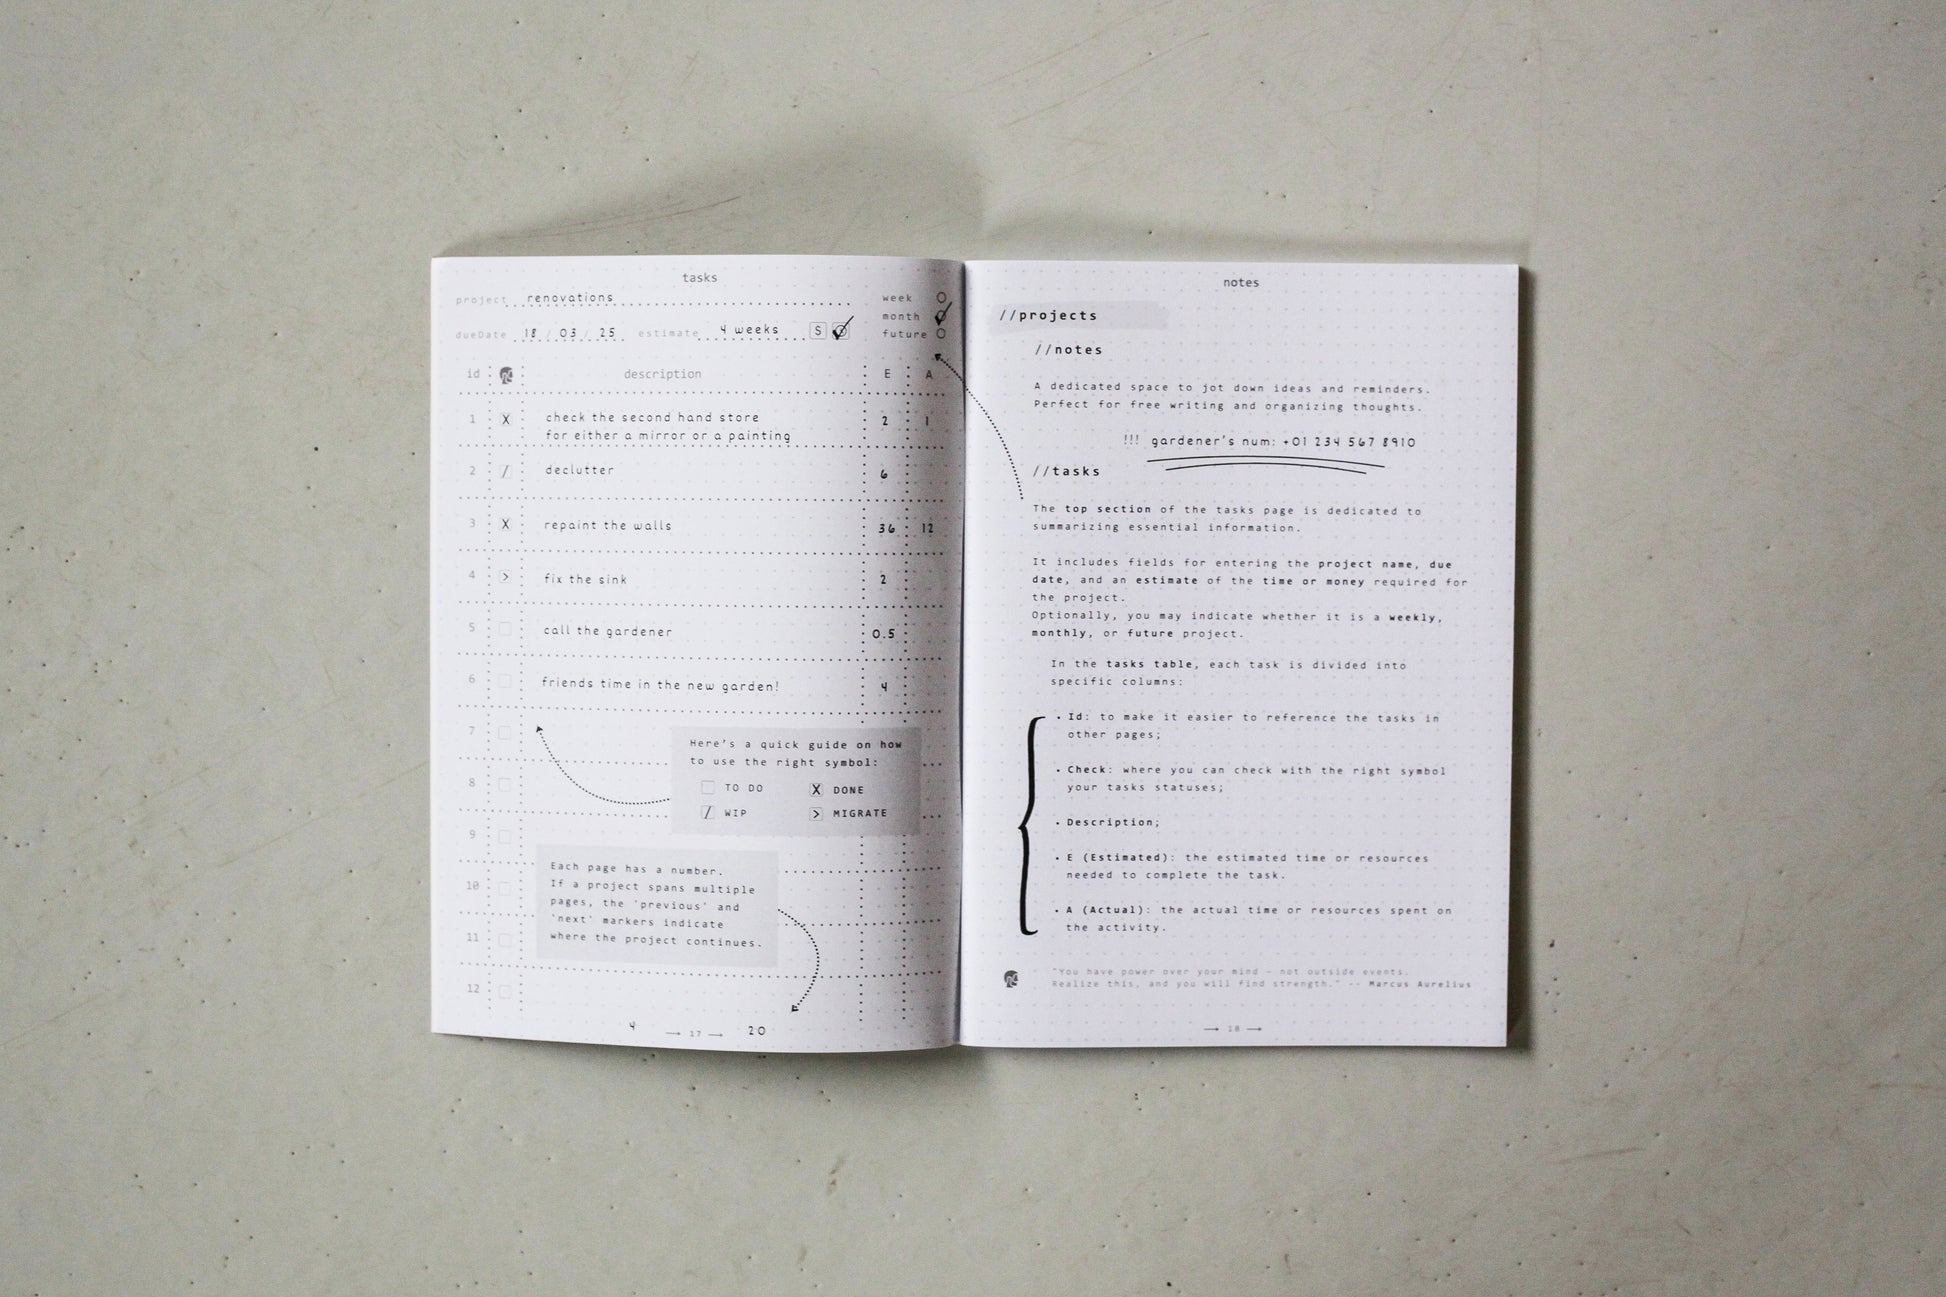 tasks
project renovations
week
dueDate 18 / 03 / 25 estimate 4 weeks S
month
future
id description E A
1 X check the second hand store 2 1
for either a mirror or a painting
2 / declutter 6
3 X repaint the walls 36 12
4 > fix the sink 2
5 call the gardener 0.5
6 friends time in the new garden! 4
7
8
9
10
11
12
Here's a quick guide on how
to use the right symbol:
TO DO X DONE
/ WIP > MIGRATE
Each page has a number.
If a project spans multiple
pages, the 'previous' and
'next' markers indicate
where the project continues.
4 → 17 → 20
notes
//projects
//notes
A dedicated space to jot down ideas and reminders.
Perfect for free writing and organizing thoughts.
!!! gardener's num: +01 234 567 8910
//tasks
The top section of the tasks page is dedicated to
summarizing essential information.
It includes fields for entering the project name, due
date, and an estimate of the time or money required for
the project.
Optionally, you may indicate whether it is a weekly,
monthly, or future project.
In the tasks table, each task is divided into
specific columns:
• Id: to make it easier to reference the tasks in
other pages;
• Check: where you can check with the right symbol
your tasks statuses;
• Description;
• E (Estimated): the estimated time or resources
needed to complete the task.
• A (Actual): the actual time or resources spent on
the activity.
"You have power over your mind - not outside events.
Realize this, and you will find strength." -- Marcus Aurelius
→ 18 →